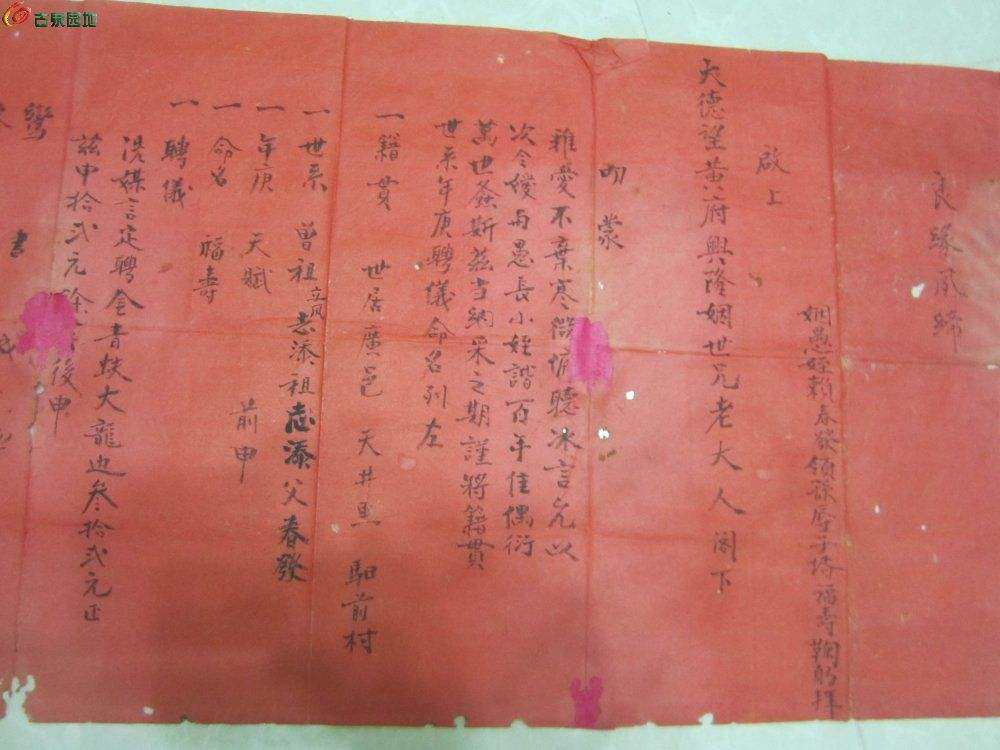 良緣夙締
姻愚姪賴春發領孫辱子壻福壽鞠躬拜
啟上
大德望黃府興隆姻世兄老大人閣下
叨蒙
雅愛不棄寒微俯聽冰言允以
次令嫒與愚長小姪諧百年佳偶衍
萬世螽斯茲當納采之期謹將籍貫
世系年庚聘儀命名列左
一籍貫 世居廣邑 天井 前村
一世系 曾祖立凤志添祖志添父春發
一年庚 天賦 前申
一命名 福壽
一聘儀
憑媒言定聘金青蚨大龍边叁拾弍元正
茲申拾弍元餘 後申
鸞書
古泉园地